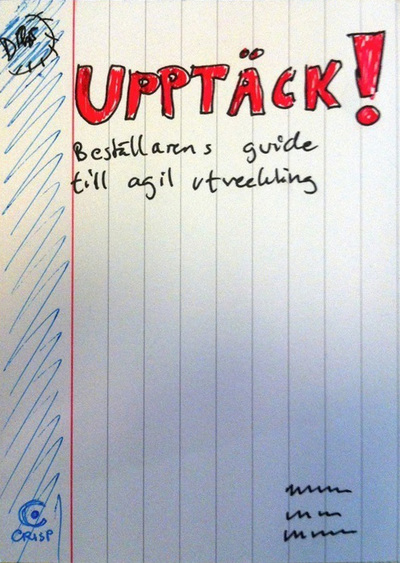 UPPTÄCK!
Beställarens guide
till agil utveckling
CRISP